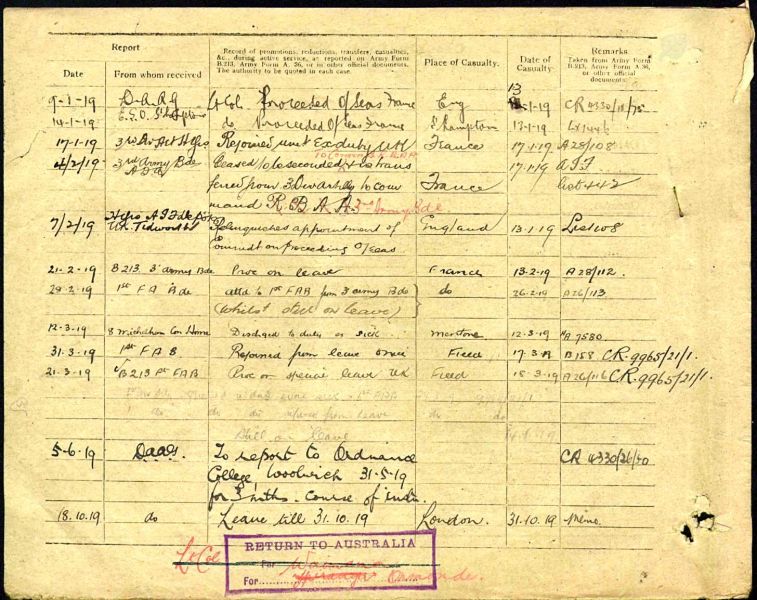 Report
Record of promotions, reductions, transfers, casualties, &c., during active service, as reported on Army Form B.213, Army Form A. 36, or in other official documents. The authority to be quoted in each case.
Place of Casualty.
Date of Casualty.
Remarks
Taken from Army Form B.213, Army Form A.36, or other official documents.
Date
From whom received
9-1-19 D.A.A.G Lt Col. Proceeded O/seas France Eng 13-1-19 CR 4330/18/75
14-1-19 do Proceeded O/seas France S'hampton 13-1-19
17-1-19 Rejoined unit Ex duty UK France 17-1-19 A28/108
4/2/19 3rd Army Bde Ceased to be seconded & is trans 17-1-19
A.F.A
ferred from 3 Div Artilly to com France List 442
mand 3rd Army Bde
7/2/19 Relinquishes appointment of England 13-1-19 List 108
UK. Tidworth
Comndt on proceeding O/seas
21-2-19 B213 3rd Army Bde Proc on leave France 13-2-19 A28/112.
1st FA Bde attd to 1st FAB from 3 Army Bde do 26-2-19 A26/113
(whilst still on leave)
12-3-19 8 Michelham Con Home Dischgd to duty ex sick Mentone 12-3-19 A 7580
31.3.19 1st F A B. Rejoined from leave Field 17-3-19 B158 CR.9965/21/1.
21-3-19 B213 1st FAB Proc on special leave UK Field 18-3-19 A26/116 CR.9965/21/1.
from leave
still on leave
5-6-19 D.a.a.G. To report to Ordnance CR 4330/26/40
College, Woolwich 31-5-19
for 3 mths. Course of instn.
18.10.19 do Leave till 31.10.19 London. 31.10.19 Memo
Lt Col
RETURN TO AUSTRALIA
Per
For Ormonde.